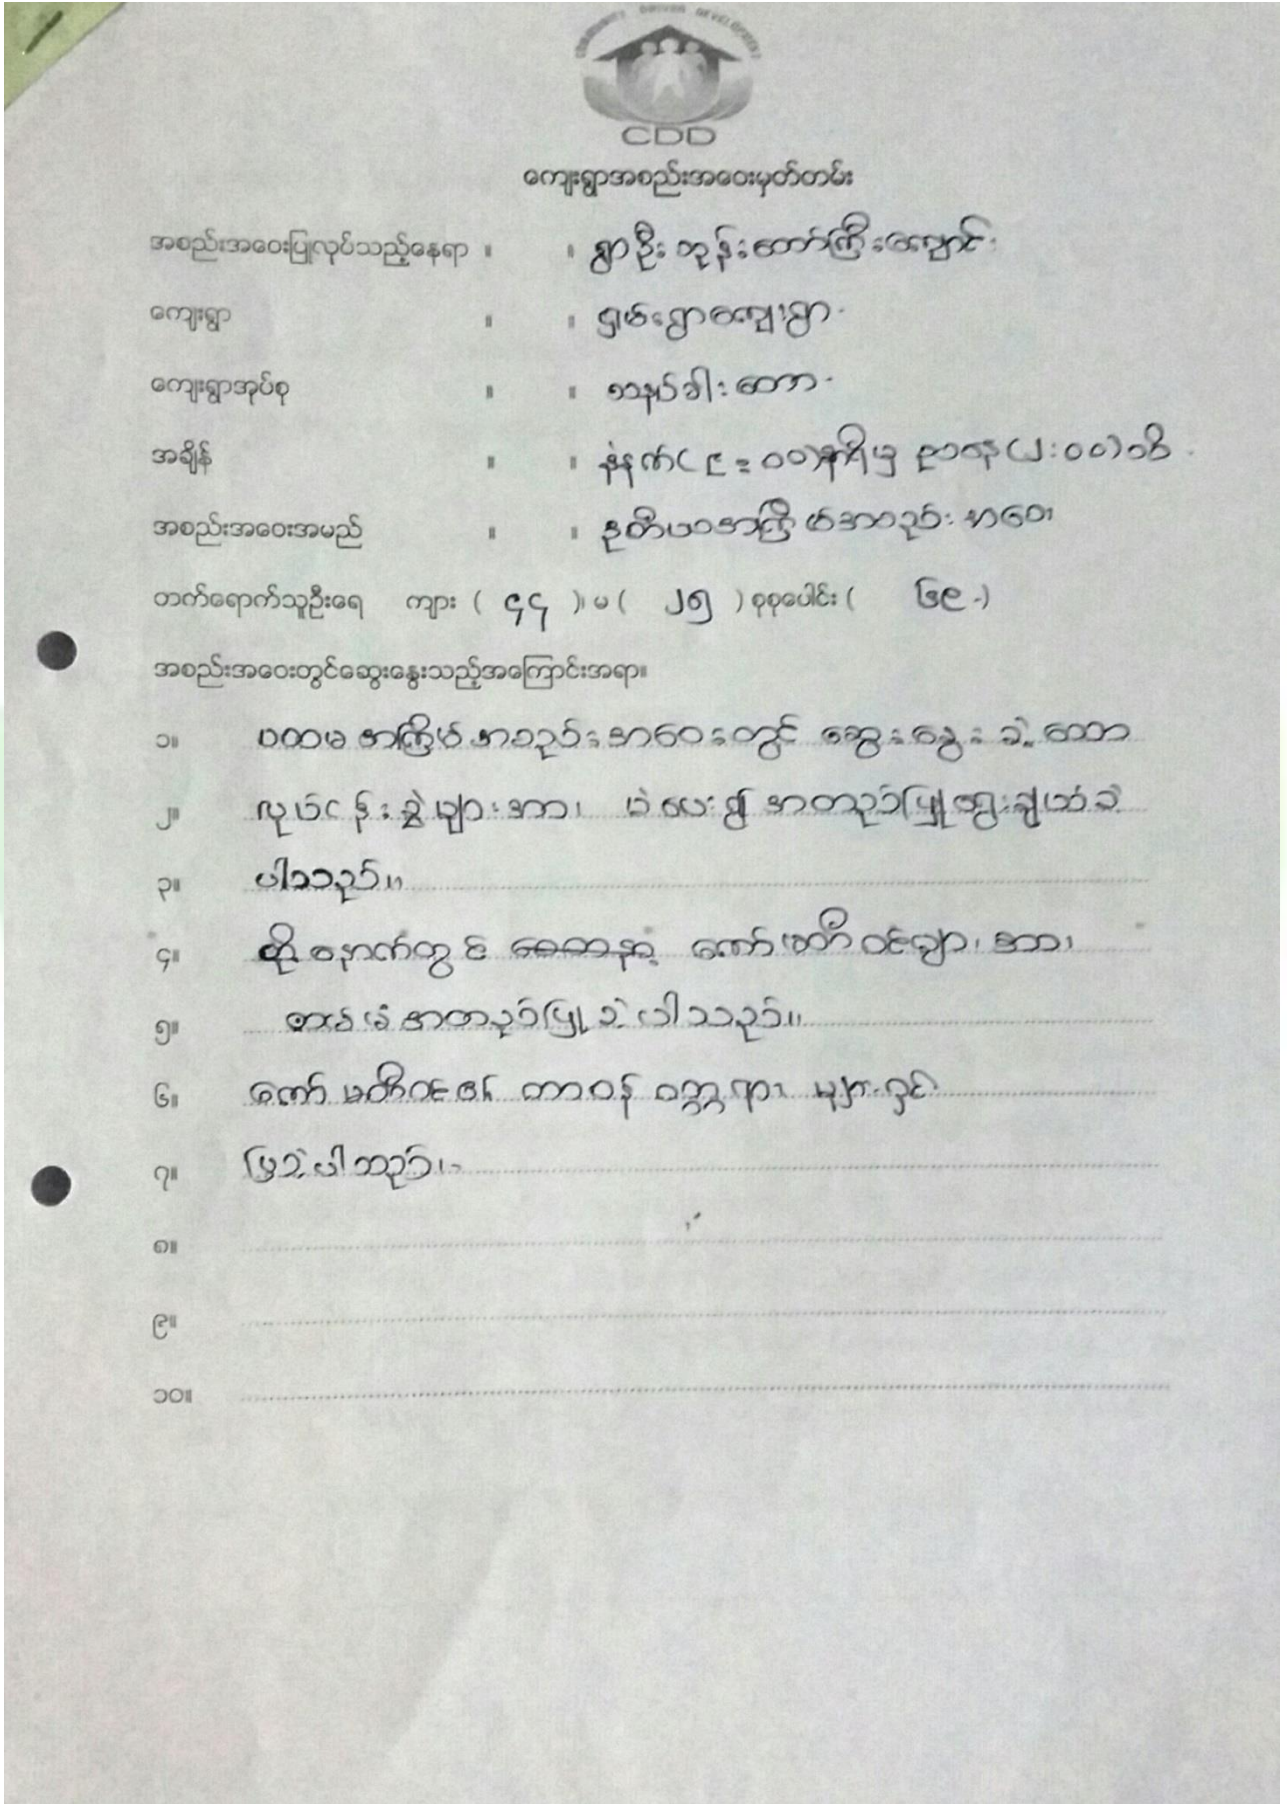 COMMUNITY DRIVEN DEVELOPMENT
CDD
ကျေးရွာအစည်းအဝေးမှတ်တမ်း
အစည်းအဝေးပြုလုပ်သည့်နေရာ ။ ။ ရွာဦးဘုန်းတော်ကြီးကျောင်း
ကျေးရွာ ။ ။ ရှမ်းရွာကျေးရွာ
ကျေးရွာအုပ်စု ။ ။ သနပ်ခါးတော
အချိန် ။ ။ နံနက်(၉=၀၀)နာရီမှ ညနေ(၂:၀၀)ထိ
အစည်းအဝေးအမည် ။ ။ ဒုတိယအကြိမ်အစည်းအဝေး
တက်ရောက်သူဦးရေ ကျား ( ၄၄ )၊ မ ( ၂၅ ) စုစုပေါင်း ( ၆၉ )
အစည်းအဝေးတွင်ဆွေးနွေးသည့်အကြောင်းအရာ။
၁။ ပထမအကြိမ်အစည်းအဝေးတွင် ဆွေးနွေးခဲ့သော
၂။ လုပ်ငန်းခွဲများအား မဲပေး၍ အတည်ပြုရွေးချယ်ခဲ့
၃။ ပါသည်။
၄။ ထို့နောက်တွင် ကော်မတီဝင်များအား
၅။ အမည်အတည်ပြုခဲ့ပါသည်။
၆။ ကော်မတီဝင်၏ တာဝန် ဝတ္တရား များရှင်း
၇။ ပြခဲ့ပါသည်။
၈။
၉။
၁၀။